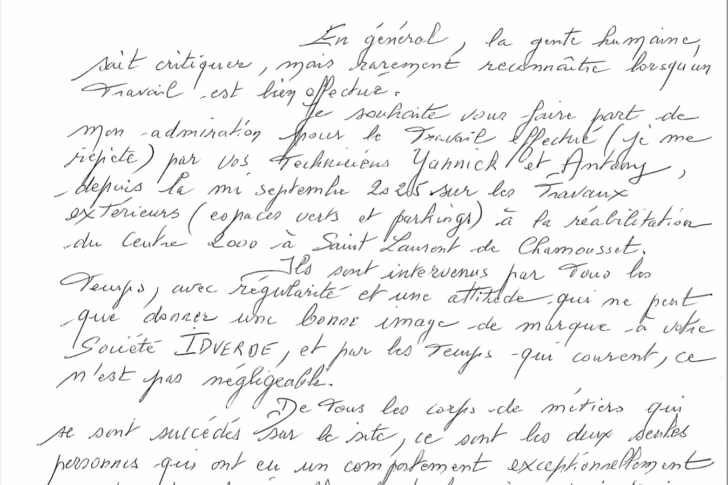 En général, la gente humaine,
sait critiquer, mais rarement reconnaître lorsqu'un
Travail est bien effectué.
Je souhaite vous faire part de
mon admiration pour le Travail effectué (je me
répète) par vos Techniciens Yannick et Antony,
depuis la mi septembre 2025 sur les Travaux
extérieurs (espaces verts et parkings) à la réabilitation
du Centre 2000 à Saint Laurent de Chamousset.
Ils sont intervenus par Tous les
Temps, avec régularité et une attitude qui ne peut
que donner une bonne image de marque à votre
Société IDVERDE, et par les Temps qui courent, ce
n'est pas négligeable.
De Tous les corps de métiers qui
se sont succédés sur le site, ce sont les deux seules
personnes qui ont eu un comportement exceptionnellement